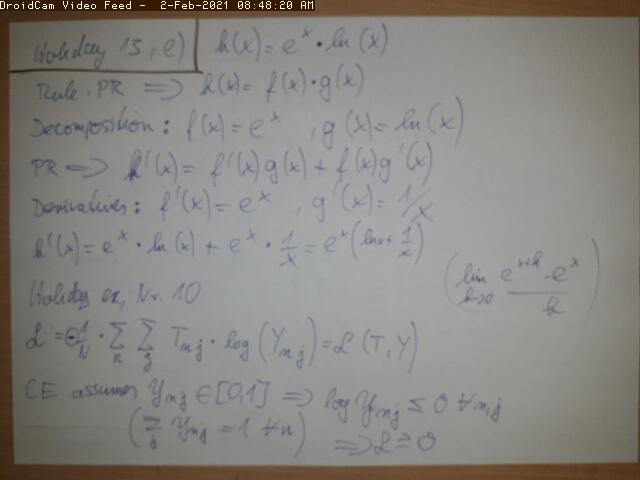 DroidCam Video Feed - 2-Feb-2021 08:48:20 AM
Holiday 13, e) h(x) = e^x · ln(x)
Rule: PR ⟹ h(x) = f(x) · g(x)
Decomposition: f(x) = e^x , g(x) = ln(x)
PR ⟹ h'(x) = f'(x)g(x) + f(x)g'(x)
Derivatives: f'(x) = e^x , g'(x) = 1/x
h'(x) = e^x · ln(x) + e^x · 1/x = e^x (ln x + 1/x)
(lim h→0 (e^{x+h} - e^x)/h)
Holiday ex, Nr. 10
ℒ = ⊖ 1/N · Σ_n Σ_j T_nj · log(Y_nj) = ℒ(T,Y)
CE assumes Y_nj ∈ [0,1] ⟹ log Y_nj ≤ 0 ∀ n,j
(Σ_j Y_nj = 1 ∀ n) ⟹ ℒ ≥ 0